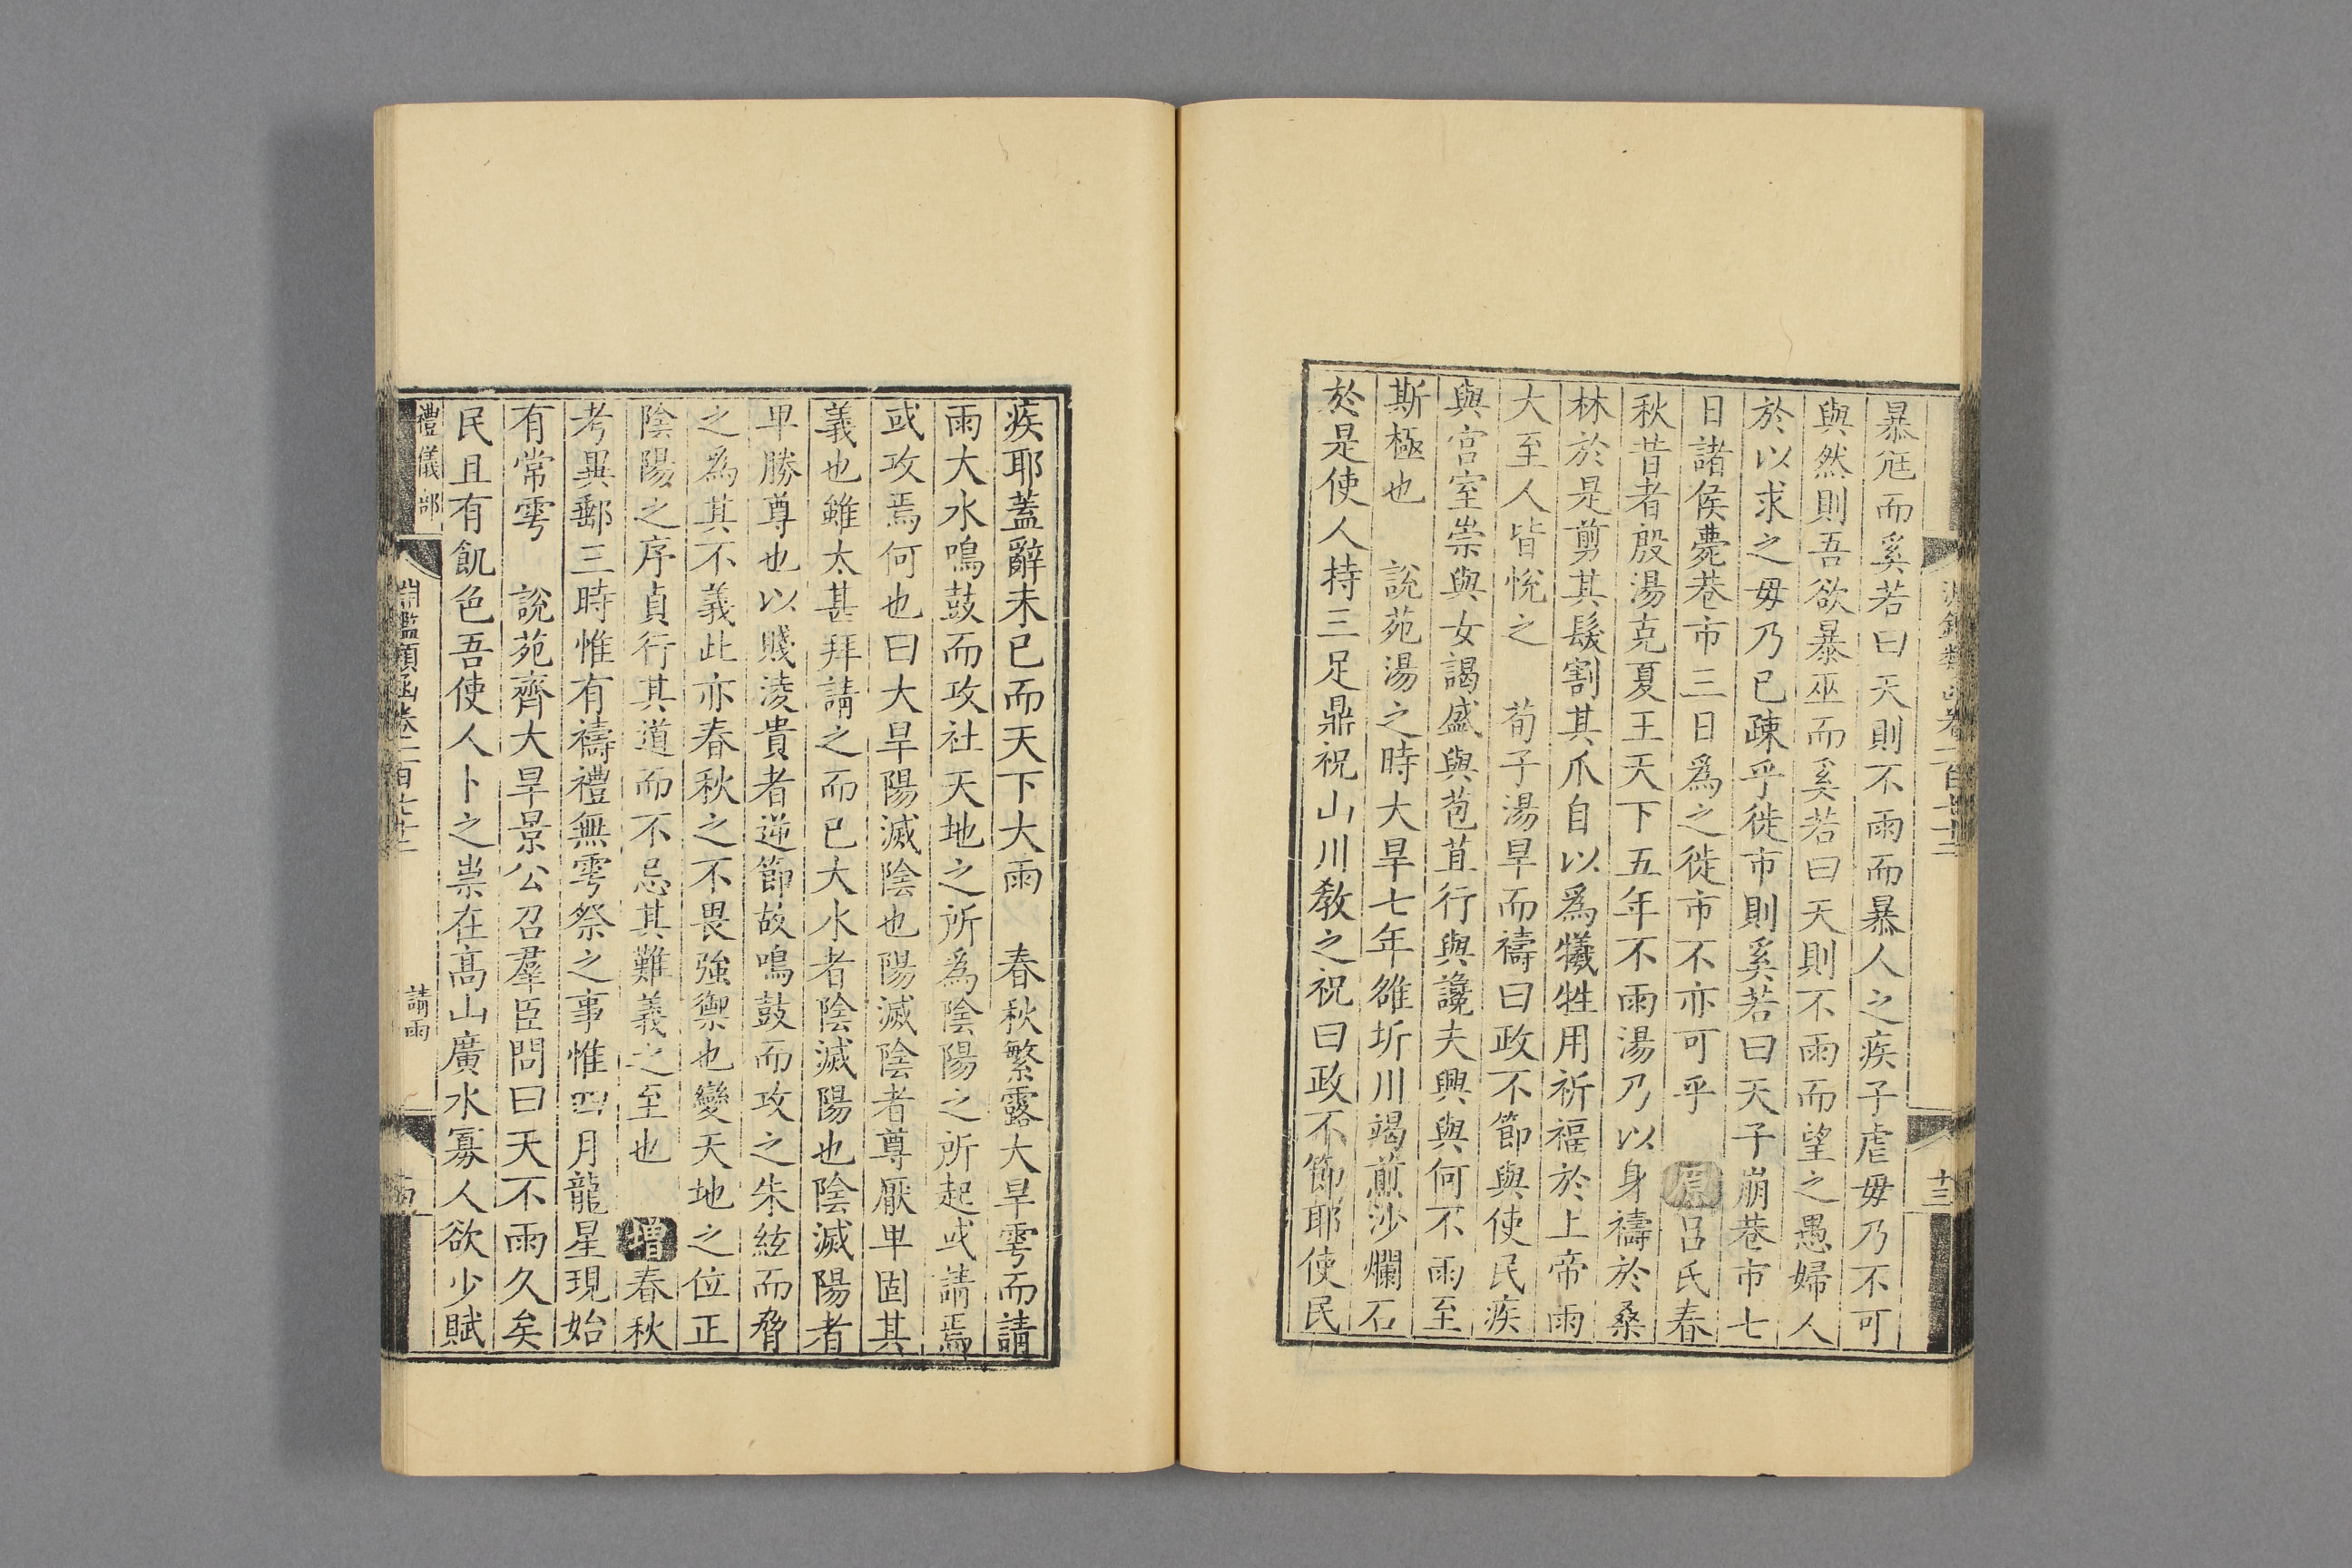 暴尫而奚若曰天則不雨而暴人之疾子虐毋乃不可
與然則吾欲暴巫而奚若曰天則不雨而望之愚婦人
於以求之毋乃已疎乎徙市則奚若曰天子崩巷市七
日諸侯薨巷市三日爲之徙市不亦可乎 原 呂氏春
秋昔者殷湯克夏王天下五年不雨湯乃以身禱於桑
林於是剪其髮割其爪自以爲犧牲用祈福於上帝雨
大至人皆悅之 荀子湯旱而禱曰政不節與使民疾
與宮室崇與女謁盛與苞苴行與讒夫興與何不雨至
斯極也 說苑湯之時大旱七年雒圻川竭煎沙爛石
於是使人持三足鼎祝山川敎之祝曰政不節耶使民
十三
疾耶蓋辭未已而天下大雨 春秋繁露大旱雩而請
雨大水鳴鼓而攻社天地之所爲陰陽之所起或請焉
或攻焉何也曰大旱陽滅陰也陽滅陰者尊厭卑固其
義也雖太甚拜請之而已大水者陰滅陽也陰滅陽者
卑勝尊也以賤淩貴者逆節故鳴鼓而攻之朱絃而脅
之爲其不義此亦春秋之不畏強禦也變天地之位正
陰陽之序貞行其道而不忌其難義之至也 增 春秋
考異郵三時惟有禱禮無雩祭之事惟四月龍星現始
有常雩 說苑齊大旱景公召羣臣問曰天不雨久矣
民且有飢色吾使人卜之祟在高山廣水寡人欲少賦
禮儀部
淵鑑類函卷一百七十二
請雨